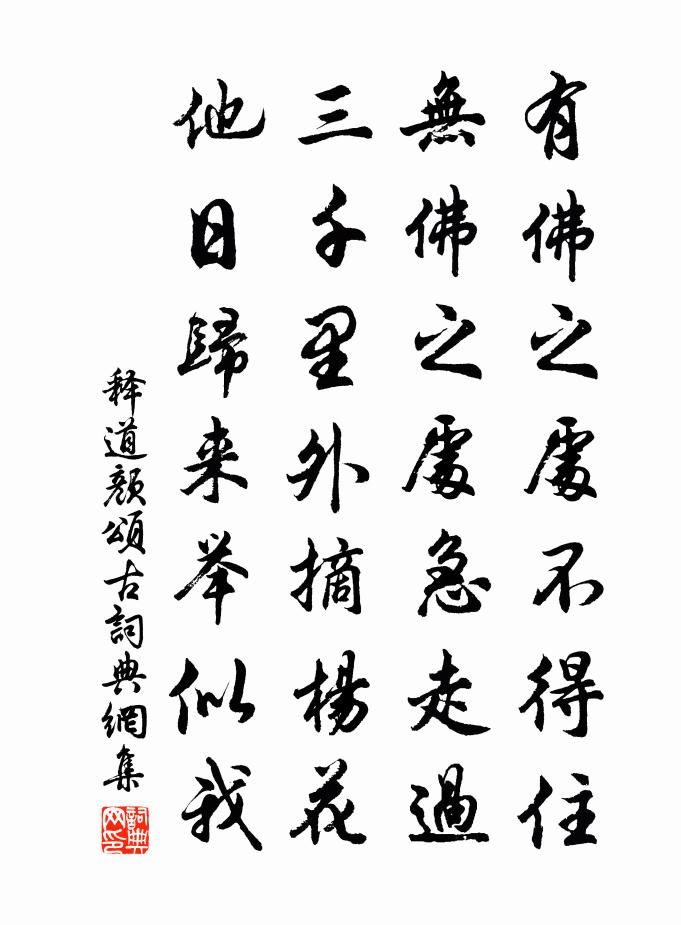 有佛之處不得住
無佛之處急走過
三千里外摘楊花
他日歸来举似我
释道颜頌古詞典網集
詞典网印